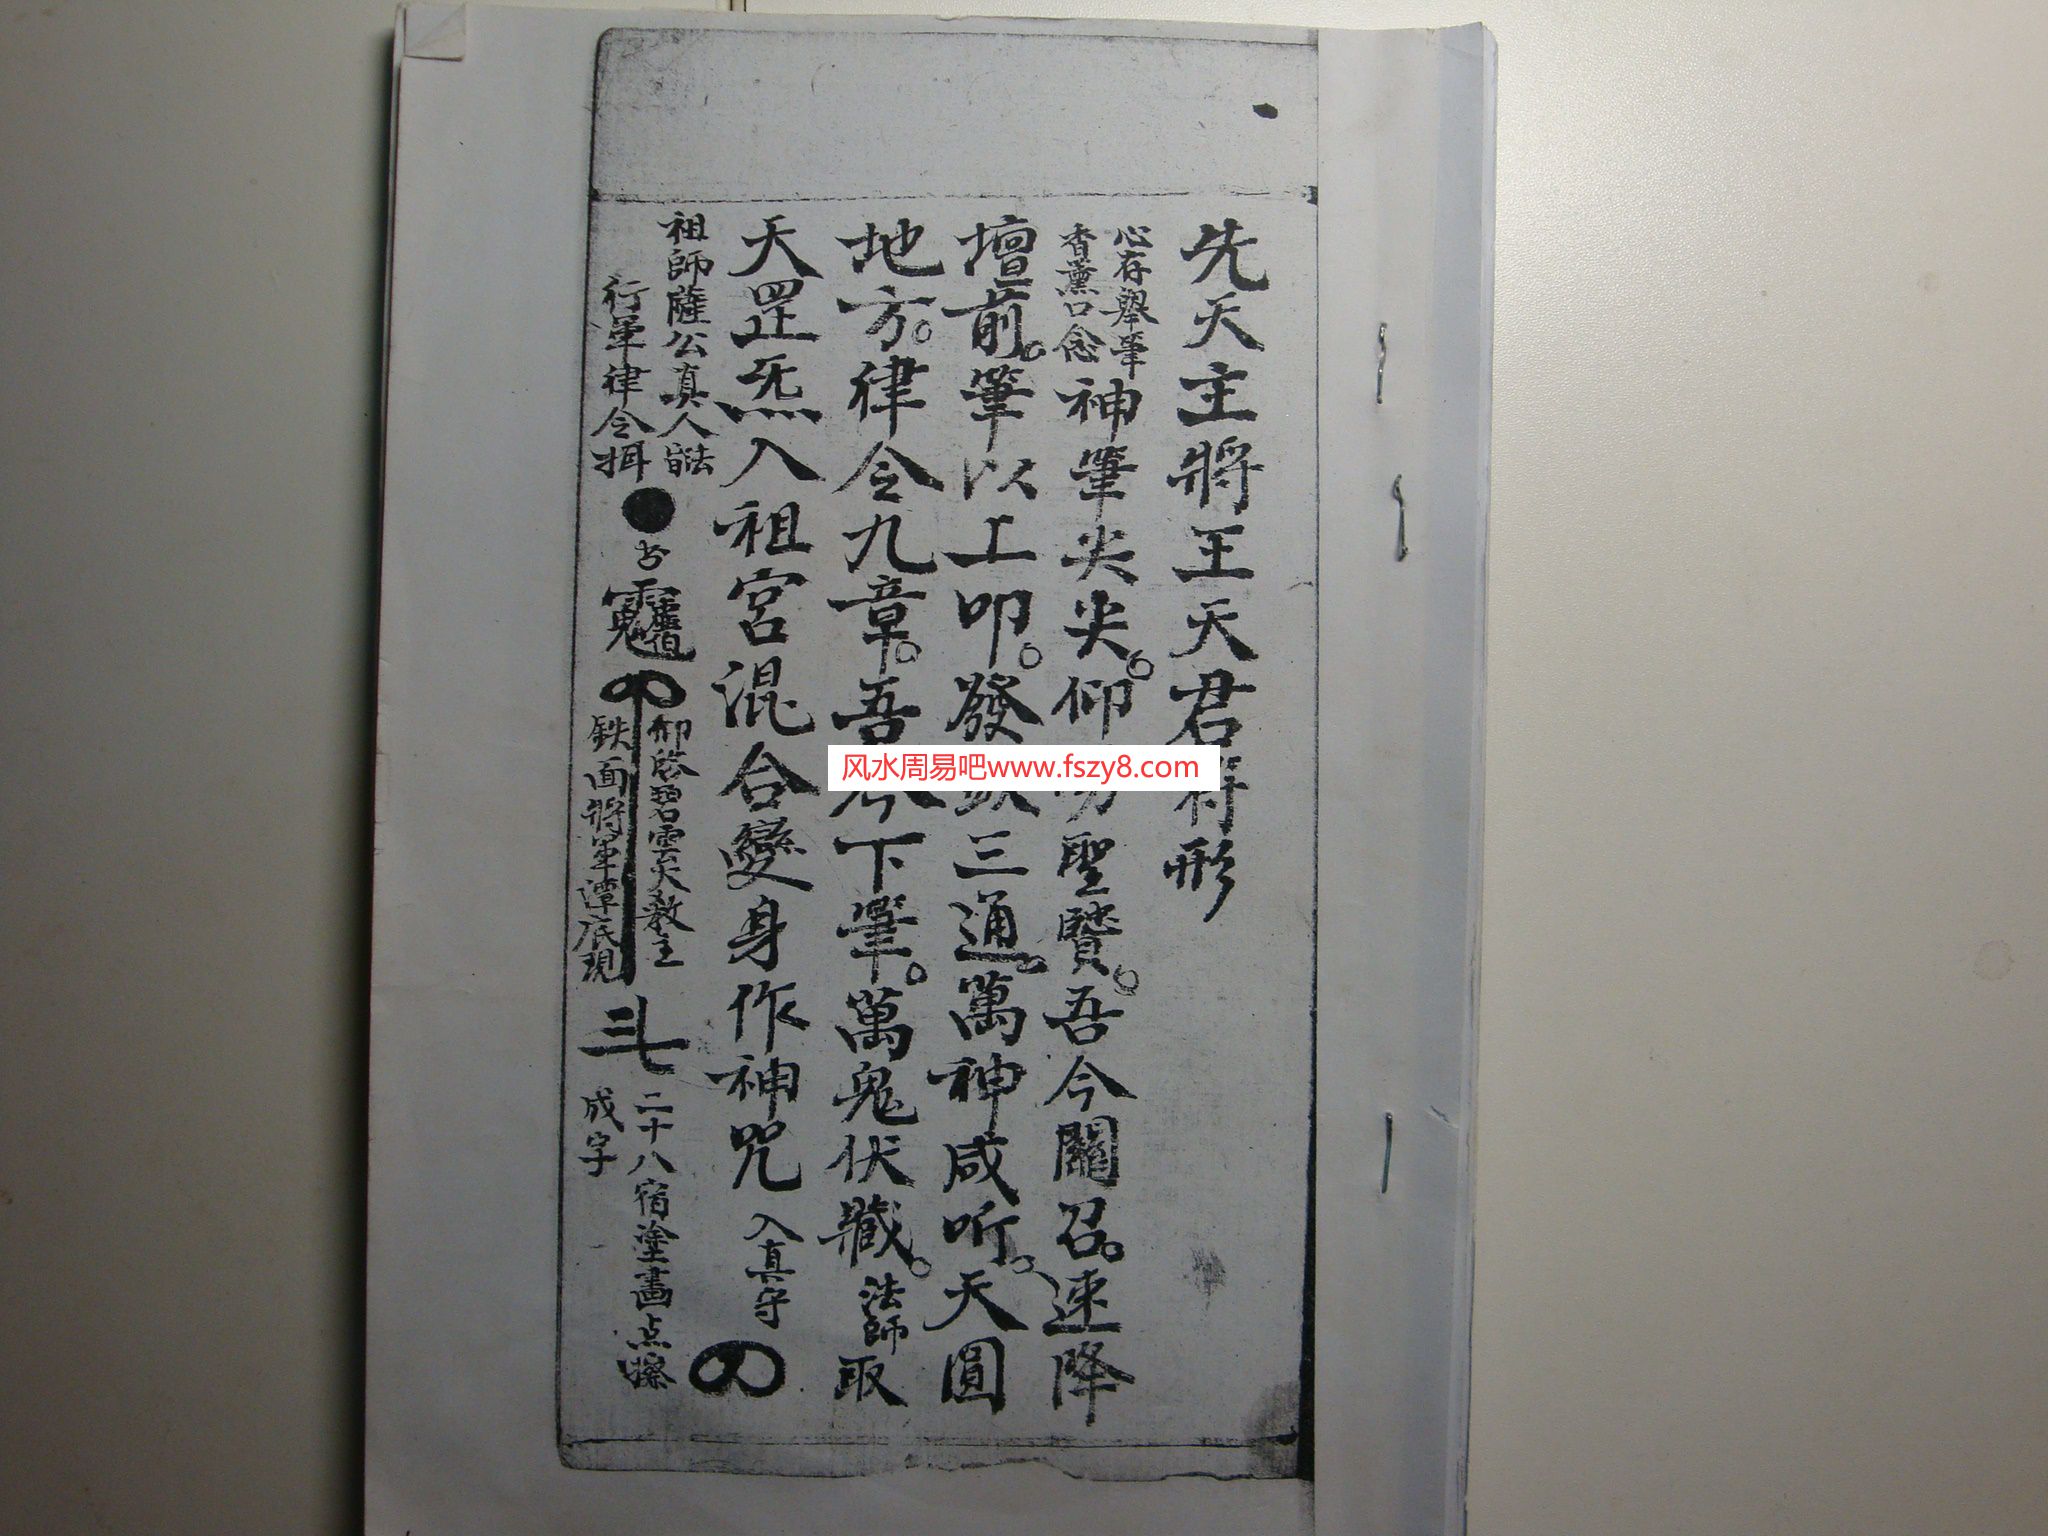 先天主將王天君符形
心存舉筆
香薰口念
神筆尖尖。仰 聖賢。吾今關召。速降
壇前。筆以工叩。發 三通。萬神咸听。天圓
地方。律令九章。吾今下筆。萬鬼伏藏。法師取
天罡炁入祖宮混合變身作神咒 入真守
祖師薩公真人
行軍律令
仰啓碧雲天教主
鉄面將軍潭底現
二十八宿塗畫点擦
成字
风水周易吧www.fszy8.com